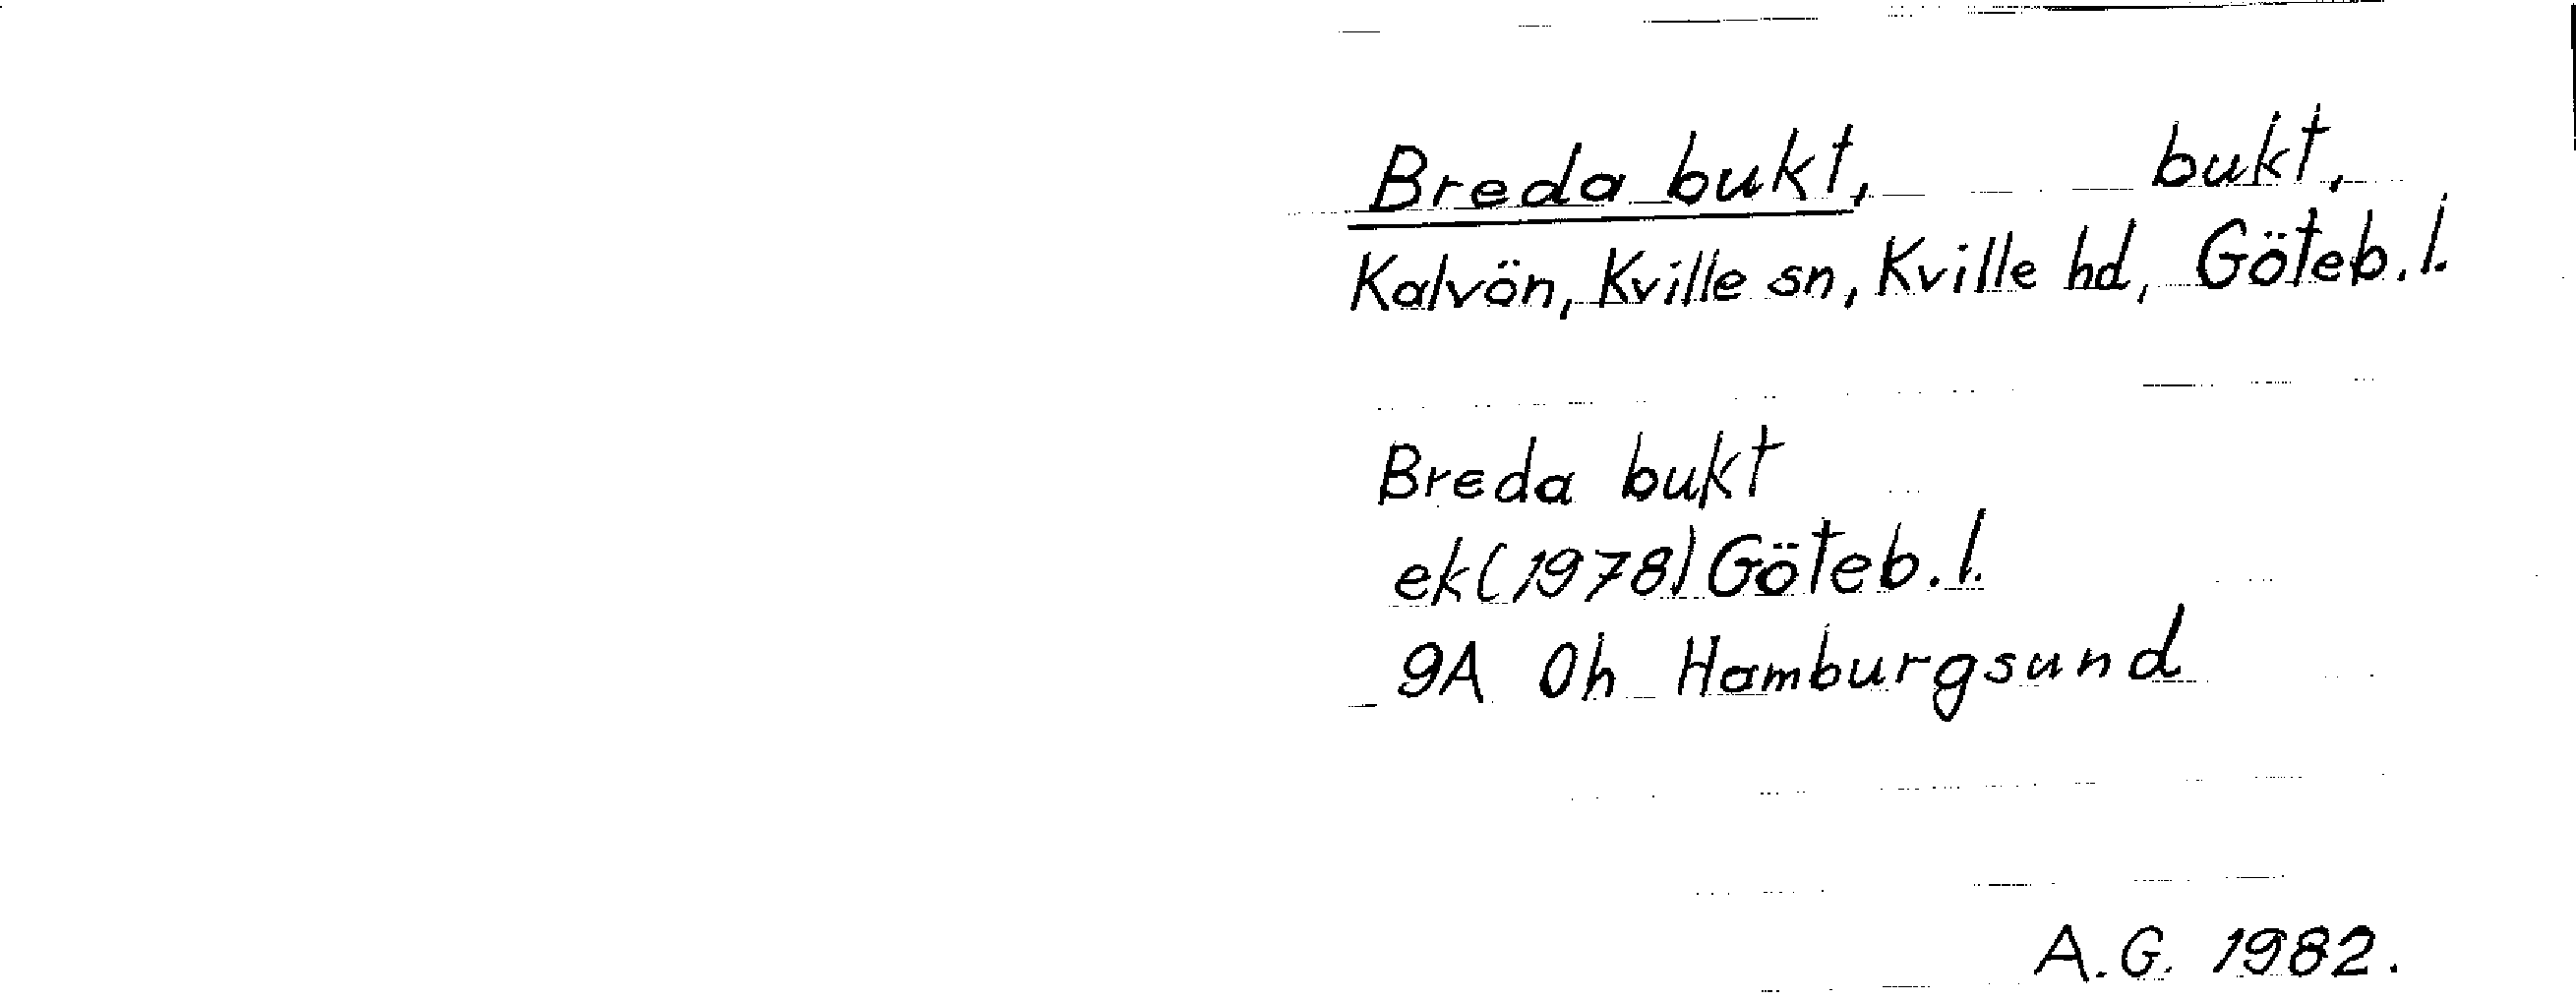 Breda bukt, bukt,
Kalvön, Kville sn, Kville hd, Göteb. l.
Breda bukt
ek (1978) Göteb. l.
9A 0h Hamburgsund
A.G. 1982.